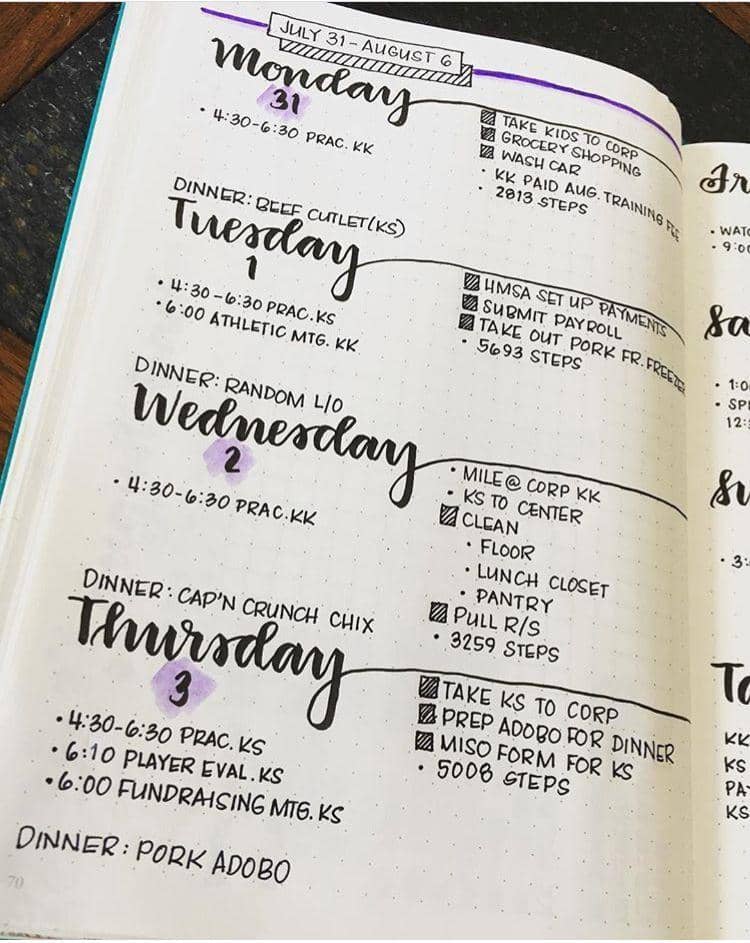 JULY 31 - AUGUST 6
Monday
31
• 4:30-6:30 PRAC. KK
TAKE KIDS TO CORP
GROCERY SHOPPING
WASH CAR
• KK PAID AUG. TRAINING FEE
• 2813 STEPS
DINNER: BEEF CUTLET(KS)
Tuesday
1
• 4:30-6:30 PRAC. KS
• 6:00 ATHLETIC MTG. KK
HMSA SET UP PAYMENTS
SUBMIT PAYROLL
TAKE OUT PORK FR. FREEZER
• 5693 STEPS
DINNER: RANDOM L/O
Wednesday
2
• 4:30-6:30 PRAC. KK
• MILE @ CORP KK
• KS TO CENTER
CLEAN
• FLOOR
• LUNCH CLOSET
• PANTRY
PULL R/S
• 3259 STEPS
DINNER: CAP'N CRUNCH CHIX
Thursday
3
• 4:30-6:30 PRAC. KS
• 6:10 PLAYER EVAL. KS
• 6:00 FUNDRAISING MTG. KS
TAKE KS TO CORP
PREP ADOBO FOR DINNER
MISO FORM FOR KS
• 5008 STEPS
DINNER: PORK ADOBO
70
Fr
• WATC
• 9:00
Sa
• 1:0
• SPI
12:
Su
• 3:
To
KK
KS
PA
KS